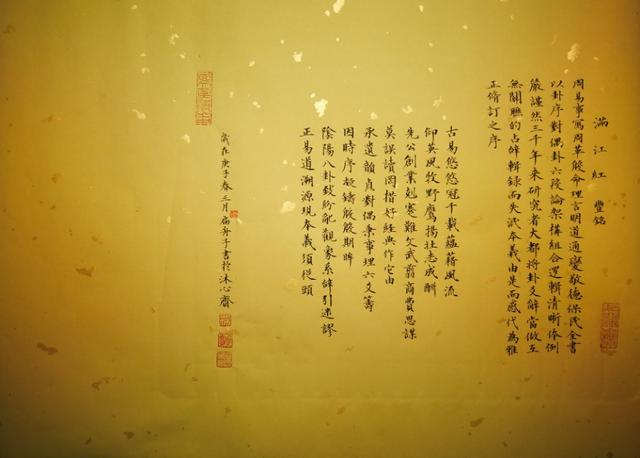 滿江紅 豐銘
周易事寫周革殷命理言明道通變敬德保民全書
以卦序對偶卦六段論架構組合邏輯清晰体例
嚴謹然三千年來研究者大都將卦爻辭當做互
無關聯的占辭輯録而失本義由是而感代為雅
正脩訂之序
古易悠悠冠千載蘊藉風流
仰英風牧野鷹揚壯志成酬
先公創業剋蹇難文武翦商費思謀
莫誤讀罔措好經典作它由
承遺韻貞對偶乘事理六爻籌
因時序凝鑄殷殷期眸
陰陽八卦致紛紜觀象系辭引迷謬
正易道溯源現本義須從頭
歲在庚子春三月扁舟子書於沐心齋